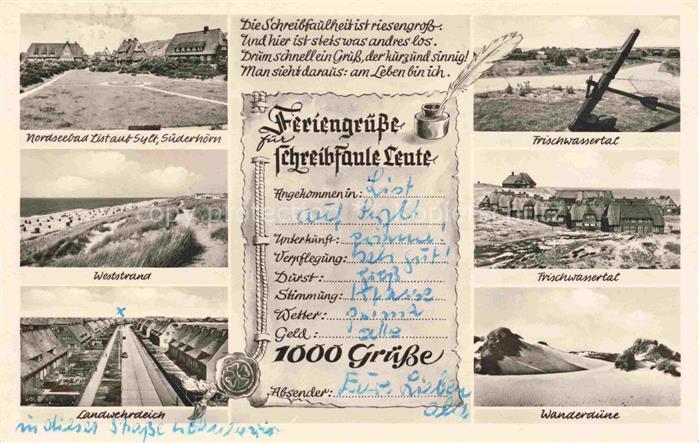 Die Schreibfaulheit ist riesengroß.
Und hier ist stets was andres los.
Drum schnell ein Gruß, der kurz und sinnig!
Man sieht daraus: am Leben bin ich.
Nordseebad List auf Sylt, Süderhörn
Weststrand
Landwehrdeich
in dieser Straße
Feriengrüße
für
schreibfaule Leute
Angekommen in: List
auf Sylt
Unterkunft: prima
Verpflegung: sehr gut!
Durst: groß
Stimmung: Klasse
Wetter: prima
Geld: alle
1000 Grüße
Absender: Eure Lieben
Frischwassertal
Frischwassertal
Wanderdüne